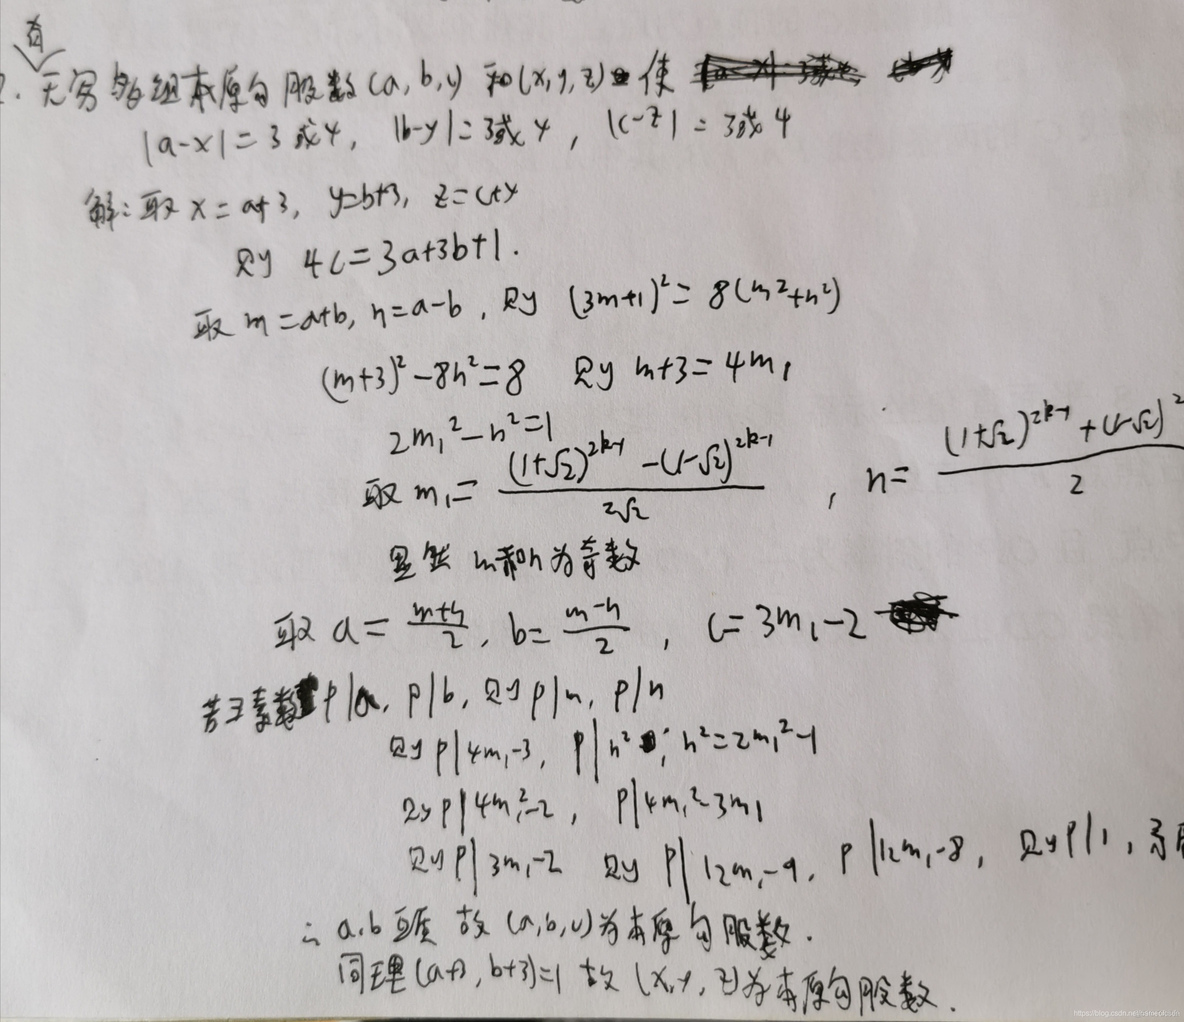 有
2. 无穷多组本原勾股数(a, b, c) 和(x, y, z) 使
|a-x| = 3或4, |b-y| = 3或4, |c-z| = 3或4
解: 取 x = a+3, y=b+3, z=c+4
则 4c = 3a+3b+1.
取 m = a+b, n = a-b, 则 (3m+1)² = 8(m²+n²)
(m+3)² - 8n² = 8 则 m+3 = 4m₁
2m₁² - n² = 1
取 m₁ = ((1+√2)^(2k-1) - (1-√2)^(2k-1)) / 2√2 , n = ((1+√2)^(2k-1) + (1-√2)^2 / 2
显然 m和n为奇数
取 a = (m+n)/2, b = (m-n)/2, c = 3m₁-2
若∃素数 p|a, p|b, 则p|m, p|n
则 p|4m₁-3, p|n² , n²=2m₁²-1
则p|4m₁²-2, p|4m₁²-3m₁
则p|3m₁-2 则 p|12m₁-9, p|12m₁-8, 则p|1,
∴ a,b 互质 故 (a,b,c)为本原勾股数.
同理(a+3, b+3)=1 故 (x, y, z)为本原勾股数.